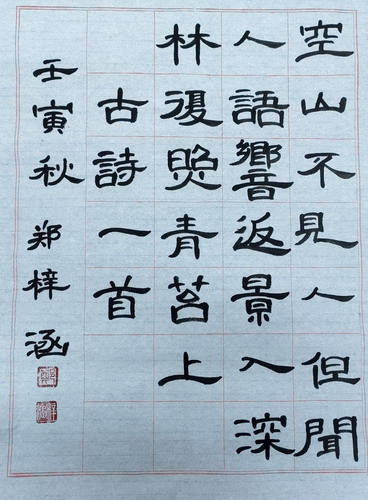 空山不見人但聞
人語響返景入深
林復照青苔上
古詩一首
壬寅秋 郑梓涵